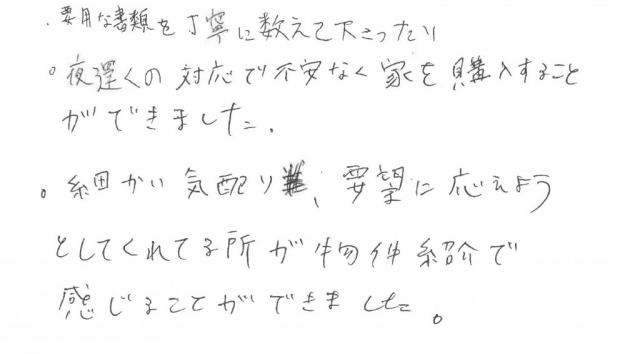 ・要用な書類を丁寧に数えて下さったり
○夜遅くの対応で不安なく家を購入すること
ができました。
○細かい気配り、要望に応えよう
としてくれてる所が物件紹介で
感じることができました。